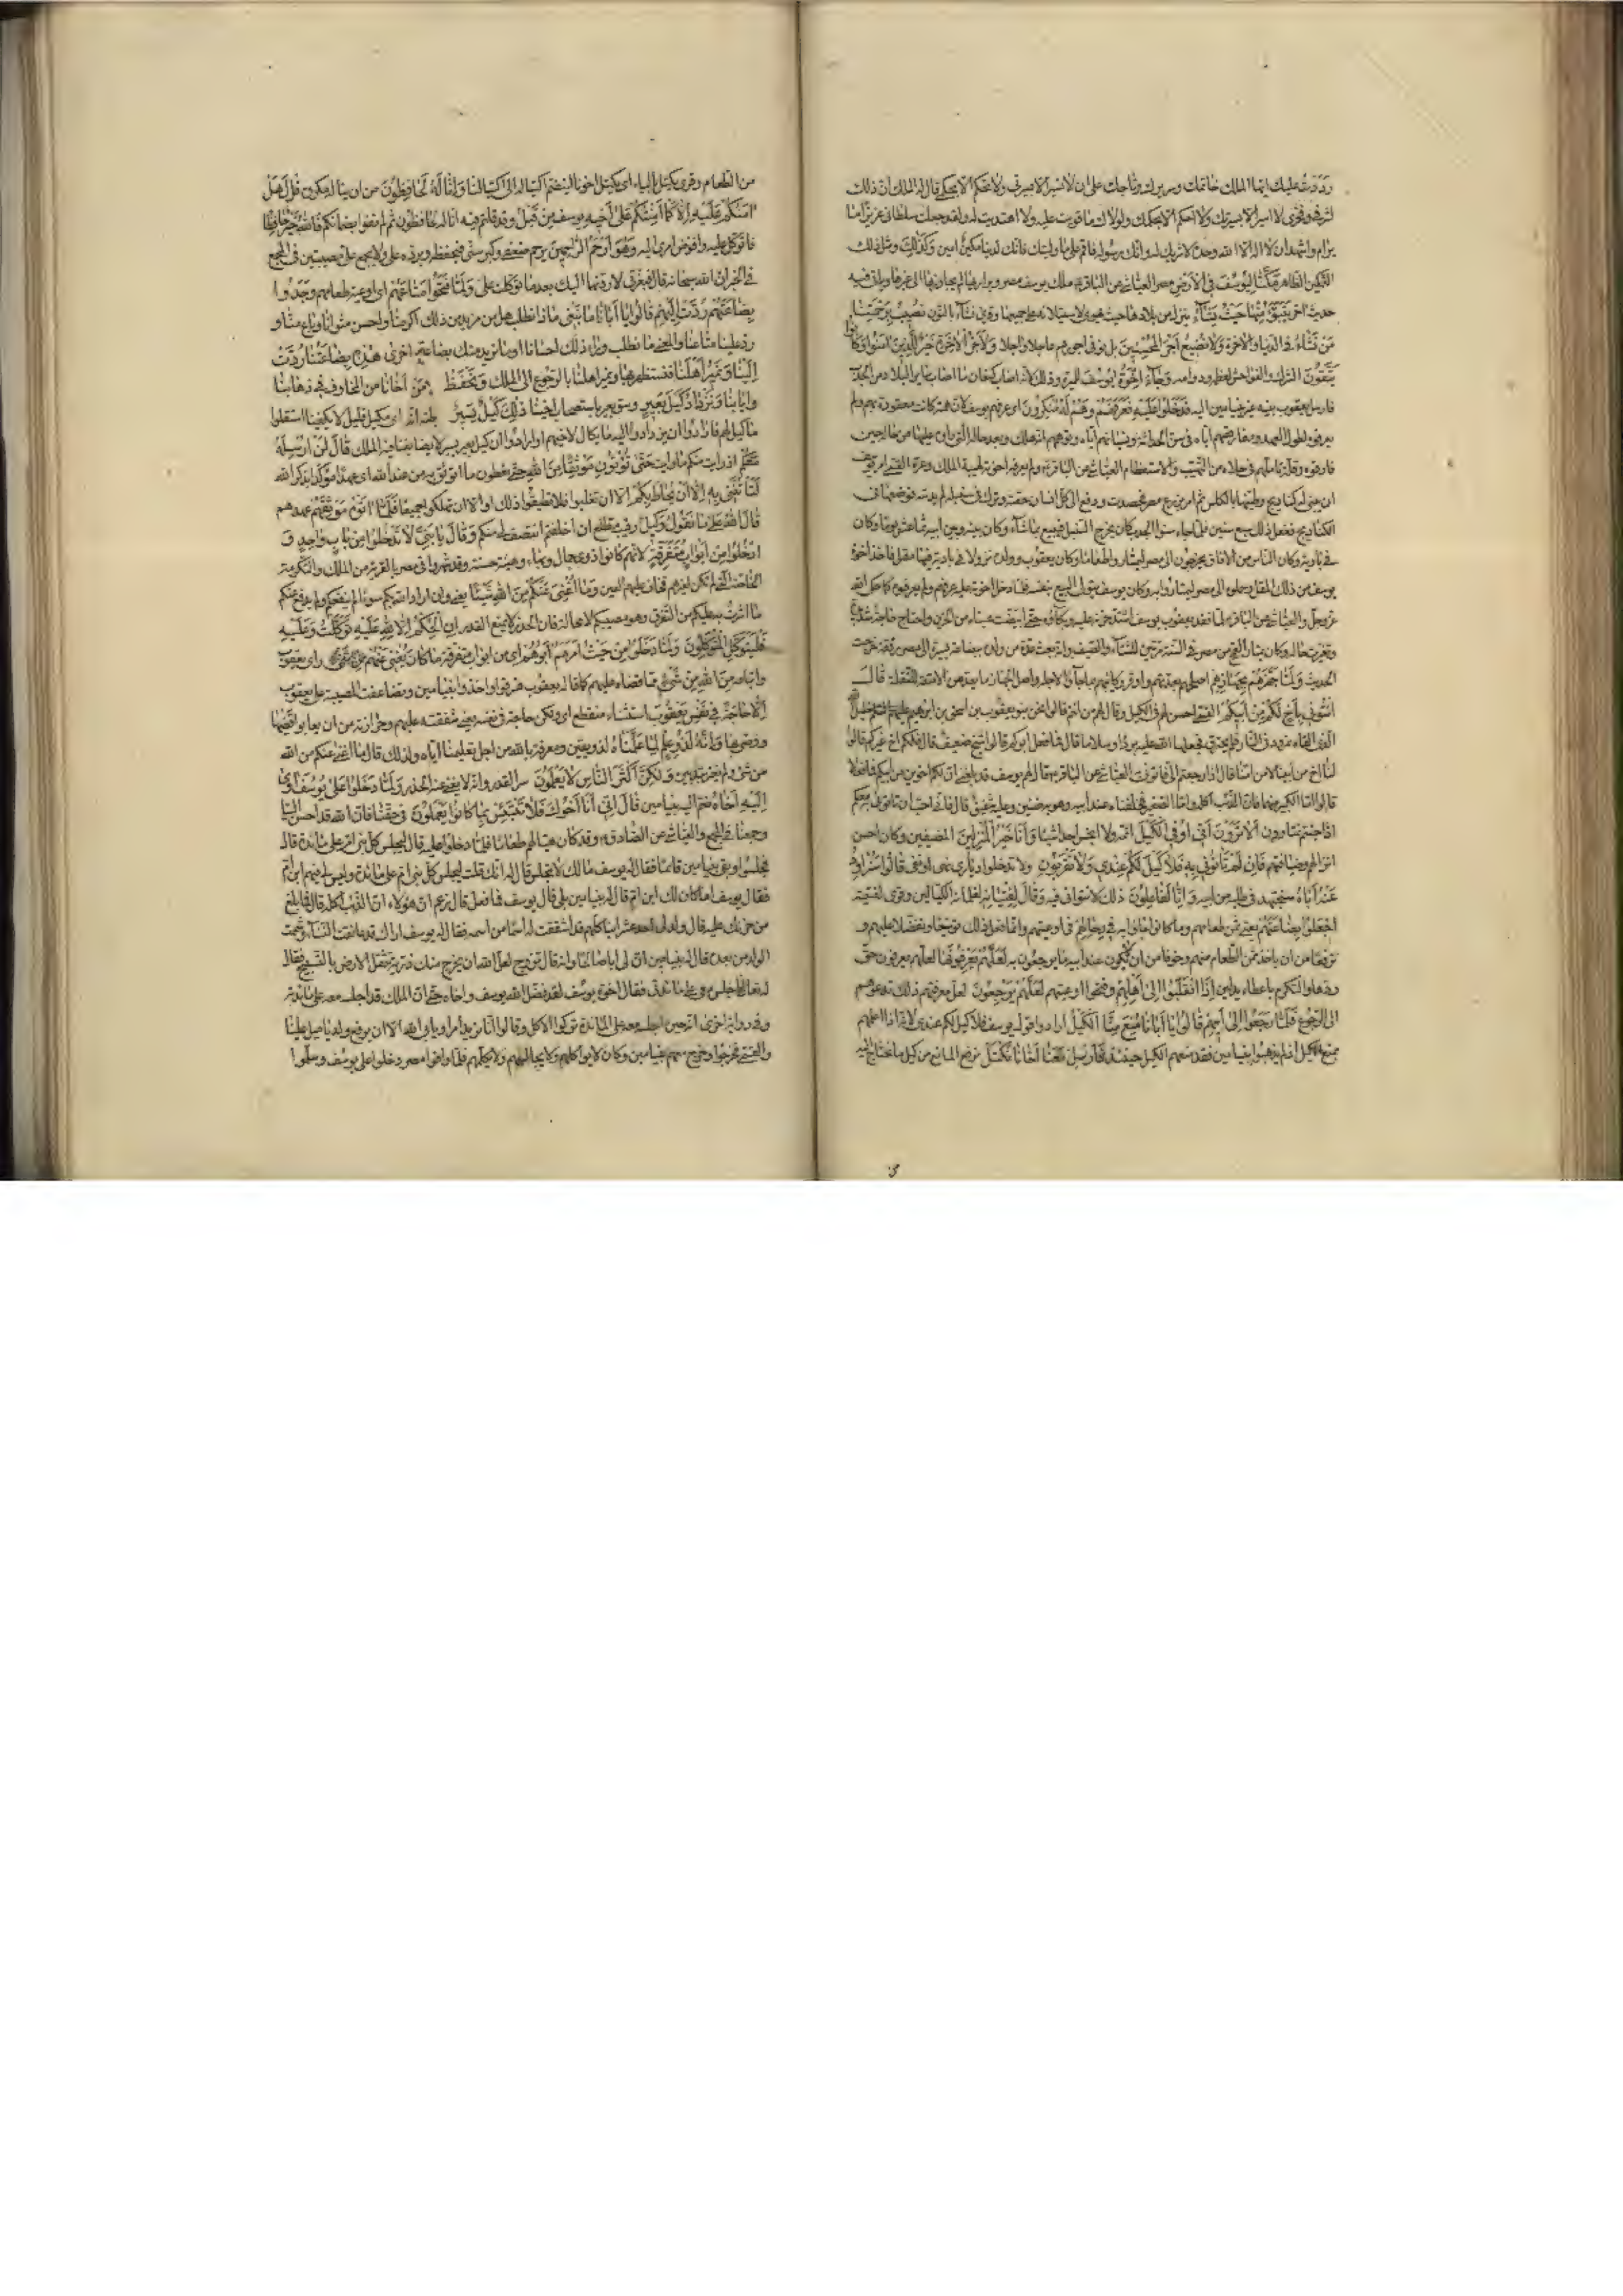 رددت عليك ايها الملك خاتمك وسريرك وتاجك على ان لا تسير الا بسيرتي ولا تحكم الا بحكمي قال له الملك ان ذلك
لشرفي وفخري لا اسير الا بسيرتك ولا احكم الا بحكمك ولولاك ما قويت عليه ولا اهتديت له ولقد جعلت سلطاني عزيزا ما
يرام واشهد ان لا اله الا الله وحده لا شريك له وانك رسوله فاقم على ما وليتك فانك لدينا مكين امين وَكَذٰلِكَ ومثل ذلك
التمكين الظاهر مَكَّنَّا لِيُوسُفَ فِي الْاَرْضِ مصر العياشي عن الباقر ملك يوسف مصر وبراريها لم يجاوزها الى غيرها
حديث اخر يَتَبَوَّءُ مِنْهَا حَيْثُ يَشَآءُ ينزل من بلادها حيث يهوى لاستيلائه على جميعها وقرئ نشآء بالنون نُصِيبُ بِرَحْمَتِنَا
مَنْ نَشَآءُ في الدنيا والاخرة وَلَا نُضِيعُ اَجْرَ الْمُحْسِنِينَ بل نوفي اجورهم عاجلا واجلا وَلَاَجْرُ الْاٰخِرَةِ خَيْرٌ لِلَّذِينَ اٰمَنُوا وَكَانُوا
يَتَّقُونَ الشرك والفواحش لعظمه ودوامه وَجَآءَ اِخْوَةُ يُوسُفَ للميرة وذلك لانه اصاب كنعان ما اصاب ساير البلاد من الجدب
فارسل يعقوب بنيه غير بنيامين اليه فَدَخَلُوا عَلَيْهِ فَعَرَفَهُمْ وَهُمْ لَهُ مُنْكِرُونَ اي عرفهم يوسف لان همته كانت معقودة بهم ولم
يعرفوه لطول العهد ومفارقتهم اياه في سن الحداثة ونسيانهم اياه وتوهمهم انه هلك وبعد حاله التي راوه عليها من حاله حين
فارقوه وقلة تاملهم في حلاه من التهيب والاستعظام العياشي عن الباقر ولم يعرفه اخوته لهيبة الملك وعزه القمي امر يوسف
ان يبنى له كناديج وطينها بالكلس ثم امر بزرع مصر فحصدت ودفع الى كل انسان حصته وترك في سنبله لم يدسه فوضعها في
الكناديج ففعل ذلك سبع سنين فلما جاء سنو الجدب كان يخرج السنبل فيبيع بما شاء وكان بينه وبين ابيه ثمانية عشر يوما وكان
في بادية وكان الناس من الافاق يخرجون الى مصر ليمتاروا طعاما وكان يعقوب وولده نزولا في بادية فيها مقل فاخذ اخوة
يوسف من ذلك المقل وحملوه الى مصر ليمتاروا به وكان يوسف يتولى البيع بنفسه فلما دخل اخوته عليه عرفهم ولم يعرفوه كما حكى الله
عز وجل والعياشي عن الباقر لما فقد يعقوب يوسف اشتد حزنه عليه وبكاؤه حتى ابيضت عيناه من الحزن واحتاج حاجة شديدة
وتغيرت حاله وكان يمتار القمح من مصر في السنة مرتين للشتاء والصيف وانه بعث عدة من ولده ببضاعة يسيرة الى مصر مع رفقة خرجت
الحديث وَلَمَّا جَهَّزَهُمْ بِجَهَازِهِمْ اصلحهم بعدتهم واوقر ركائبهم بما جاؤا لاجله واصل الجهاز ما يعد من الامتعة للنقلة قَالَ
ائْتُونِي بِاَخٍ لَكُمْ مِنْ اَبِيكُمْ القمي احسن لهم في الكيل وقال لهم من انتم قالوا نحن بنو يعقوب بن اسحق بن ابراهيم خليل الله
الذي القاه نمرود في النار فلم يحترق فجعلها الله عليه بردا وسلاما قال فما فعل ابوكم قالوا شيخ ضعيف قال فلكم اخ غيركم قالوا
لنا اخ من ابينا لا من امنا قال فاذا رجعتم الي فاتوني به العياشي عن الباقر قال لهم يوسف قد بلغني ان لكم اخوين من ابيكم فما فعلا
قالوا اما الكبير منهما فان الذئب اكله واما الصغير فخلفناه عند ابيه وهو به ضنين وعليه شفيق قال فاني احب ان تاتوني به معكم
اذا جئتم تمتارون اَلَا تَرَوْنَ اَنِّي اُوفِي الْكَيْلَ اتمه ولا ابخس احدا شيئا وَاَنَا خَيْرُ الْمُنْزِلِينَ المضيفين وكان احسن
انزالهم وضيافتهم فَاِنْ لَمْ تَاْتُونِي بِهِ فَلَا كَيْلَ لَكُمْ عِنْدِي وَلَا تَقْرَبُونِ ولا تدخلوا دياري نهي او نفي قَالُوا سَنُرَاوِدُ
عَنْهُ اَبَاهُ سنجتهد في طلبه من ابيه وَاِنَّا لَفَاعِلُونَ ذلك لا نتوانى فيه وَقَالَ لِفِتْيَانِهِ لغلمانه الكيالين وقرئ لفتيته
اجْعَلُوا بِضَاعَتَهُمْ يعني ثمن طعامهم وما كانوا جاؤا به فِي رِحَالِهِمْ في اوعيتهم وانما فعل ذلك توسيعا وتفضلا عليهم و
ترفعا من ان ياخذ ثمن الطعام منهم وخوفا من ان لا يكون عند ابيه ما يرجعون به لَعَلَّهُمْ يَعْرِفُونَهَا لعلهم يعرفون حق
ردها والتكرم باعطاء بدلين اِذَا انْقَلَبُوا اِلٰى اَهْلِهِمْ وفتحوا اوعيتهم لَعَلَّهُمْ يَرْجِعُونَ لعل معرفتهم ذلك تدعوهم
الى الرجوع فَلَمَّا رَجَعُوا اِلٰى اَبِيهِمْ قَالُوا يَا اَبَانَا مُنِعَ مِنَّا الْكَيْلُ ارادوا قول يوسف فلا كيل لكم عندي لانه اذا اعلمهم
بمنع الكيل ان لم يذهبوا ببنيامين فقد منعهم الكيل حينئذ فَاَرْسِلْ مَعَنَا اَخَانَا نَكْتَلْ نرفع المانع من كيل ما نحتاج اليه
من الطعام وقرئ يكتل بالياء اي يكتل اخونا لينضم اكتياله الى اكتيالنا وَاِنَّا لَهُ لَحَافِظُونَ من ان يناله مكروه قَالَ هَلْ
اٰمَنُكُمْ عَلَيْهِ اِلَّا كَمَا اَمِنْتُكُمْ عَلٰى اَخِيهِ يوسف مِنْ قَبْلُ وقد قلتم فيه انا له لحافظون ثم لم تفوا بضمانكم فَاللّٰهُ خَيْرٌ حَافِظًا
فاتوكل عليه وافوض امري اليه وَهُوَ اَرْحَمُ الرَّاحِمِينَ يرحم ضعفي وكبر سني فيحفظه ويرده علي ولا يجمع علي مصيبتين في المجمع
في الخبر ان الله سبحانه قال فبعزتي لاردنهما اليك بعد ما توكلت علي وَلَمَّا فَتَحُوا مَتَاعَهُمْ اي اوعية طعامهم وَجَدُوا
بِضَاعَتَهُمْ رُدَّتْ اِلَيْهِمْ قَالُوا يَا اَبَانَا مَا نَبْغِي ماذا نطلب هل من مزيد من ذلك اكرمنا واحسن مثوانا وباع منا و
رد علينا متاعنا والمعنى ما نطلب وراء ذلك احسانا او ما نريد منك بضاعة اخرى هٰذِهِ بِضَاعَتُنَا رُدَّتْ
اِلَيْنَا وَنَمِيرُ اَهْلَنَا فنستظهر بها ونمير اهلنا بالرجوع الى الملك وَنَحْفَظُ اَخَانَا من المخاوف في ذهابنا
وايابنا وَنَزْدَادُ كَيْلَ بَعِيرٍ وسق بعير باستصحاب اخينا ذٰلِكَ كَيْلٌ يَسِيرٌ اي مكيل قليل لا يكفينا استقلوا
ما كيل لهم فارادوا ان يزدادوا اليه ما يكال لاخيهم او ارادوا ان كيل بعير يسير لا يضايقنا فيه الملك قَالَ لَنْ اُرْسِلَهُ
مَعَكُمْ اذ رايت منكم ما رايت حَتّٰى تُؤْتُونِ مَوْثِقًا مِنَ اللّٰهِ حتى تعطوني ما اتوثق به من عند الله اي عهدا مؤكدا بذكر الله
لَتَاْتُنَّنِي بِهِ اِلَّا اَنْ يُحَاطَ بِكُمْ الا ان تغلبوا فلا تطيقوا ذلك او الا ان تهلكوا جميعا فَلَمَّا اٰتَوْهُ مَوْثِقَهُمْ عهدهم
قَالَ اللّٰهُ عَلٰى مَا نَقُولُ وَكِيلٌ رقيب مطلع ان اخلفتم انتصف لي منكم وَقَالَ يَا بَنِيَّ لَا تَدْخُلُوا مِنْ بَابٍ وَاحِدٍ وَ
ادْخُلُوا مِنْ اَبْوَابٍ مُتَفَرِّقَةٍ لانهم كانوا ذوي جمال وبهاء وهيئة حسنة وقد شهروا في مصر بالقربة من الملك والتكرمة
الخاصة التي لم تكن لغيرهم فخاف عليهم العين وَمَا اُغْنِي عَنْكُمْ مِنَ اللّٰهِ مِنْ شَيْءٍ يعني وان اراد الله بكم سوءا لم ينفعكم ولم يدفع عنكم
ما اشرت به عليكم من التفرق وهو مصيبكم لا محالة فان الحذر لا يمنع القدر اِنِ الْحُكْمُ اِلَّا لِلّٰهِ عَلَيْهِ تَوَكَّلْتُ وَعَلَيْهِ
فَلْيَتَوَكَّلِ الْمُتَوَكِّلُونَ وَلَمَّا دَخَلُوا مِنْ حَيْثُ اَمَرَهُمْ اَبُوهُمْ اي من ابواب متفرقة مَا كَانَ يُغْنِي عَنْهُمْ راي يعقوب
واتباعه مِنَ اللّٰهِ مِنْ شَيْءٍ مما قضاه عليهم كما قاله يعقوب فسرقوا واخذ بنيامين وتضاعفت المصيبة على يعقوب
اِلَّا حَاجَةً فِي نَفْسِ يَعْقُوبَ استثناء منقطع اي ولكن حاجة في نفسه يعني شفقته عليهم وحزازته من ان يعانوا قَضٰيهَا
ووصى بها وَاِنَّهُ لَذُو عِلْمٍ لِمَا عَلَّمْنَاهُ لذو يقين ومعرفة بالله من اجل تعليمنا اياه ولذلك قال ما اغني عنكم من الله
من شيء ولم يغتر بتدبيره وَلٰكِنَّ اَكْثَرَ النَّاسِ لَا يَعْلَمُونَ سر القدر وانه لا يغني عنه الحذر وَلَمَّا دَخَلُوا عَلٰى يُوسُفَ اٰوٰى
اِلَيْهِ اَخَاهُ ضم اليه بنيامين قَالَ اِنِّي اَنَا اَخُوكَ فَلَا تَبْتَئِسْ بِمَا كَانُوا يَعْمَلُونَ في حقنا فان الله قد احسن الينا
وجمعنا في المجمع والعياشي عن الصادق وقد كان هيا لهم طعاما فلما دخلوا عليه قال ليجلس كل بني ام على مائدة قال
فجلسوا وبقي بنيامين قائما فقال له يوسف ما لك لا تجلس قال له انك قلت ليجلس كل بني ام على مائدة وليس لي فيهم ابن ام
فقال يوسف اما كان لك ابن ام قال له بنيامين بلى قال يوسف فما فعل قال زعم ان هؤلاء ان الذئب اكله قال فما بلغ
من حزنك عليه قال ولد لي احد عشر ابنا كلهم قد اشتققت له اسما من اسمه فقال له يوسف اراك قد عانقت النساء وشممت
الولد من بعده قال له بنيامين ان لي ابا صالحا وانه قال تزوج لعل الله ان يخرج منك ذرية تثقل الارض بالتسبيح فقال
له تعال فاجلس معي على مائدتي فقال اخوة يوسف لقد فضل الله يوسف واخاه حتى ان الملك قد اجلسه معه على مائدته
وفي رواية اخرى انه حين اجلسه معه على المائدة تركوا الاكل وقالوا انا نريد امرا ويابى الله الا ان يرفع ولد يامين علينا
والقمي فخرجوا وخرج معهم بنيامين وكان لا يؤاكلهم ولا يجالسهم ولا يكلمهم فلما وافوا مصر دخلوا على يوسف وسلموا